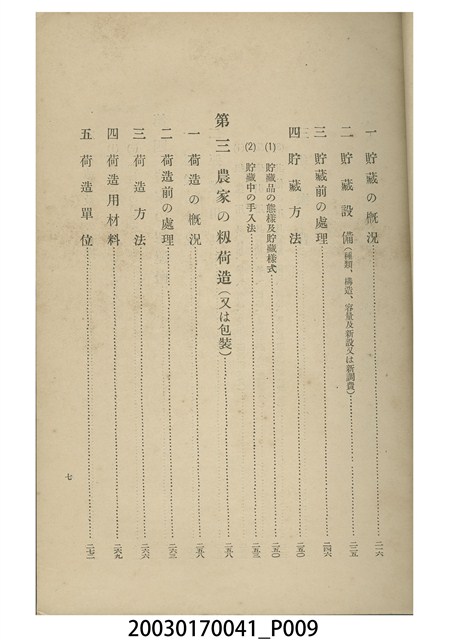 一 貯藏の槪況……二一六
二 貯藏設備(種類、構造、容量及新設又は新調費)……二三五
三 貯藏前の處理……二四六
四 貯藏方法……二五〇
(1) 貯藏品の態樣及貯藏樣式……二五〇
(2) 貯藏中の手入法……二五三
第三 農家の籾荷造(又は包裝)……二五八
一 荷造の槪況……二五八
二 荷造前の處理……二六三
三 荷造方法……二六六
四 荷造用材料……二六九
五 荷造單位……二七二
七
20030170041_P009